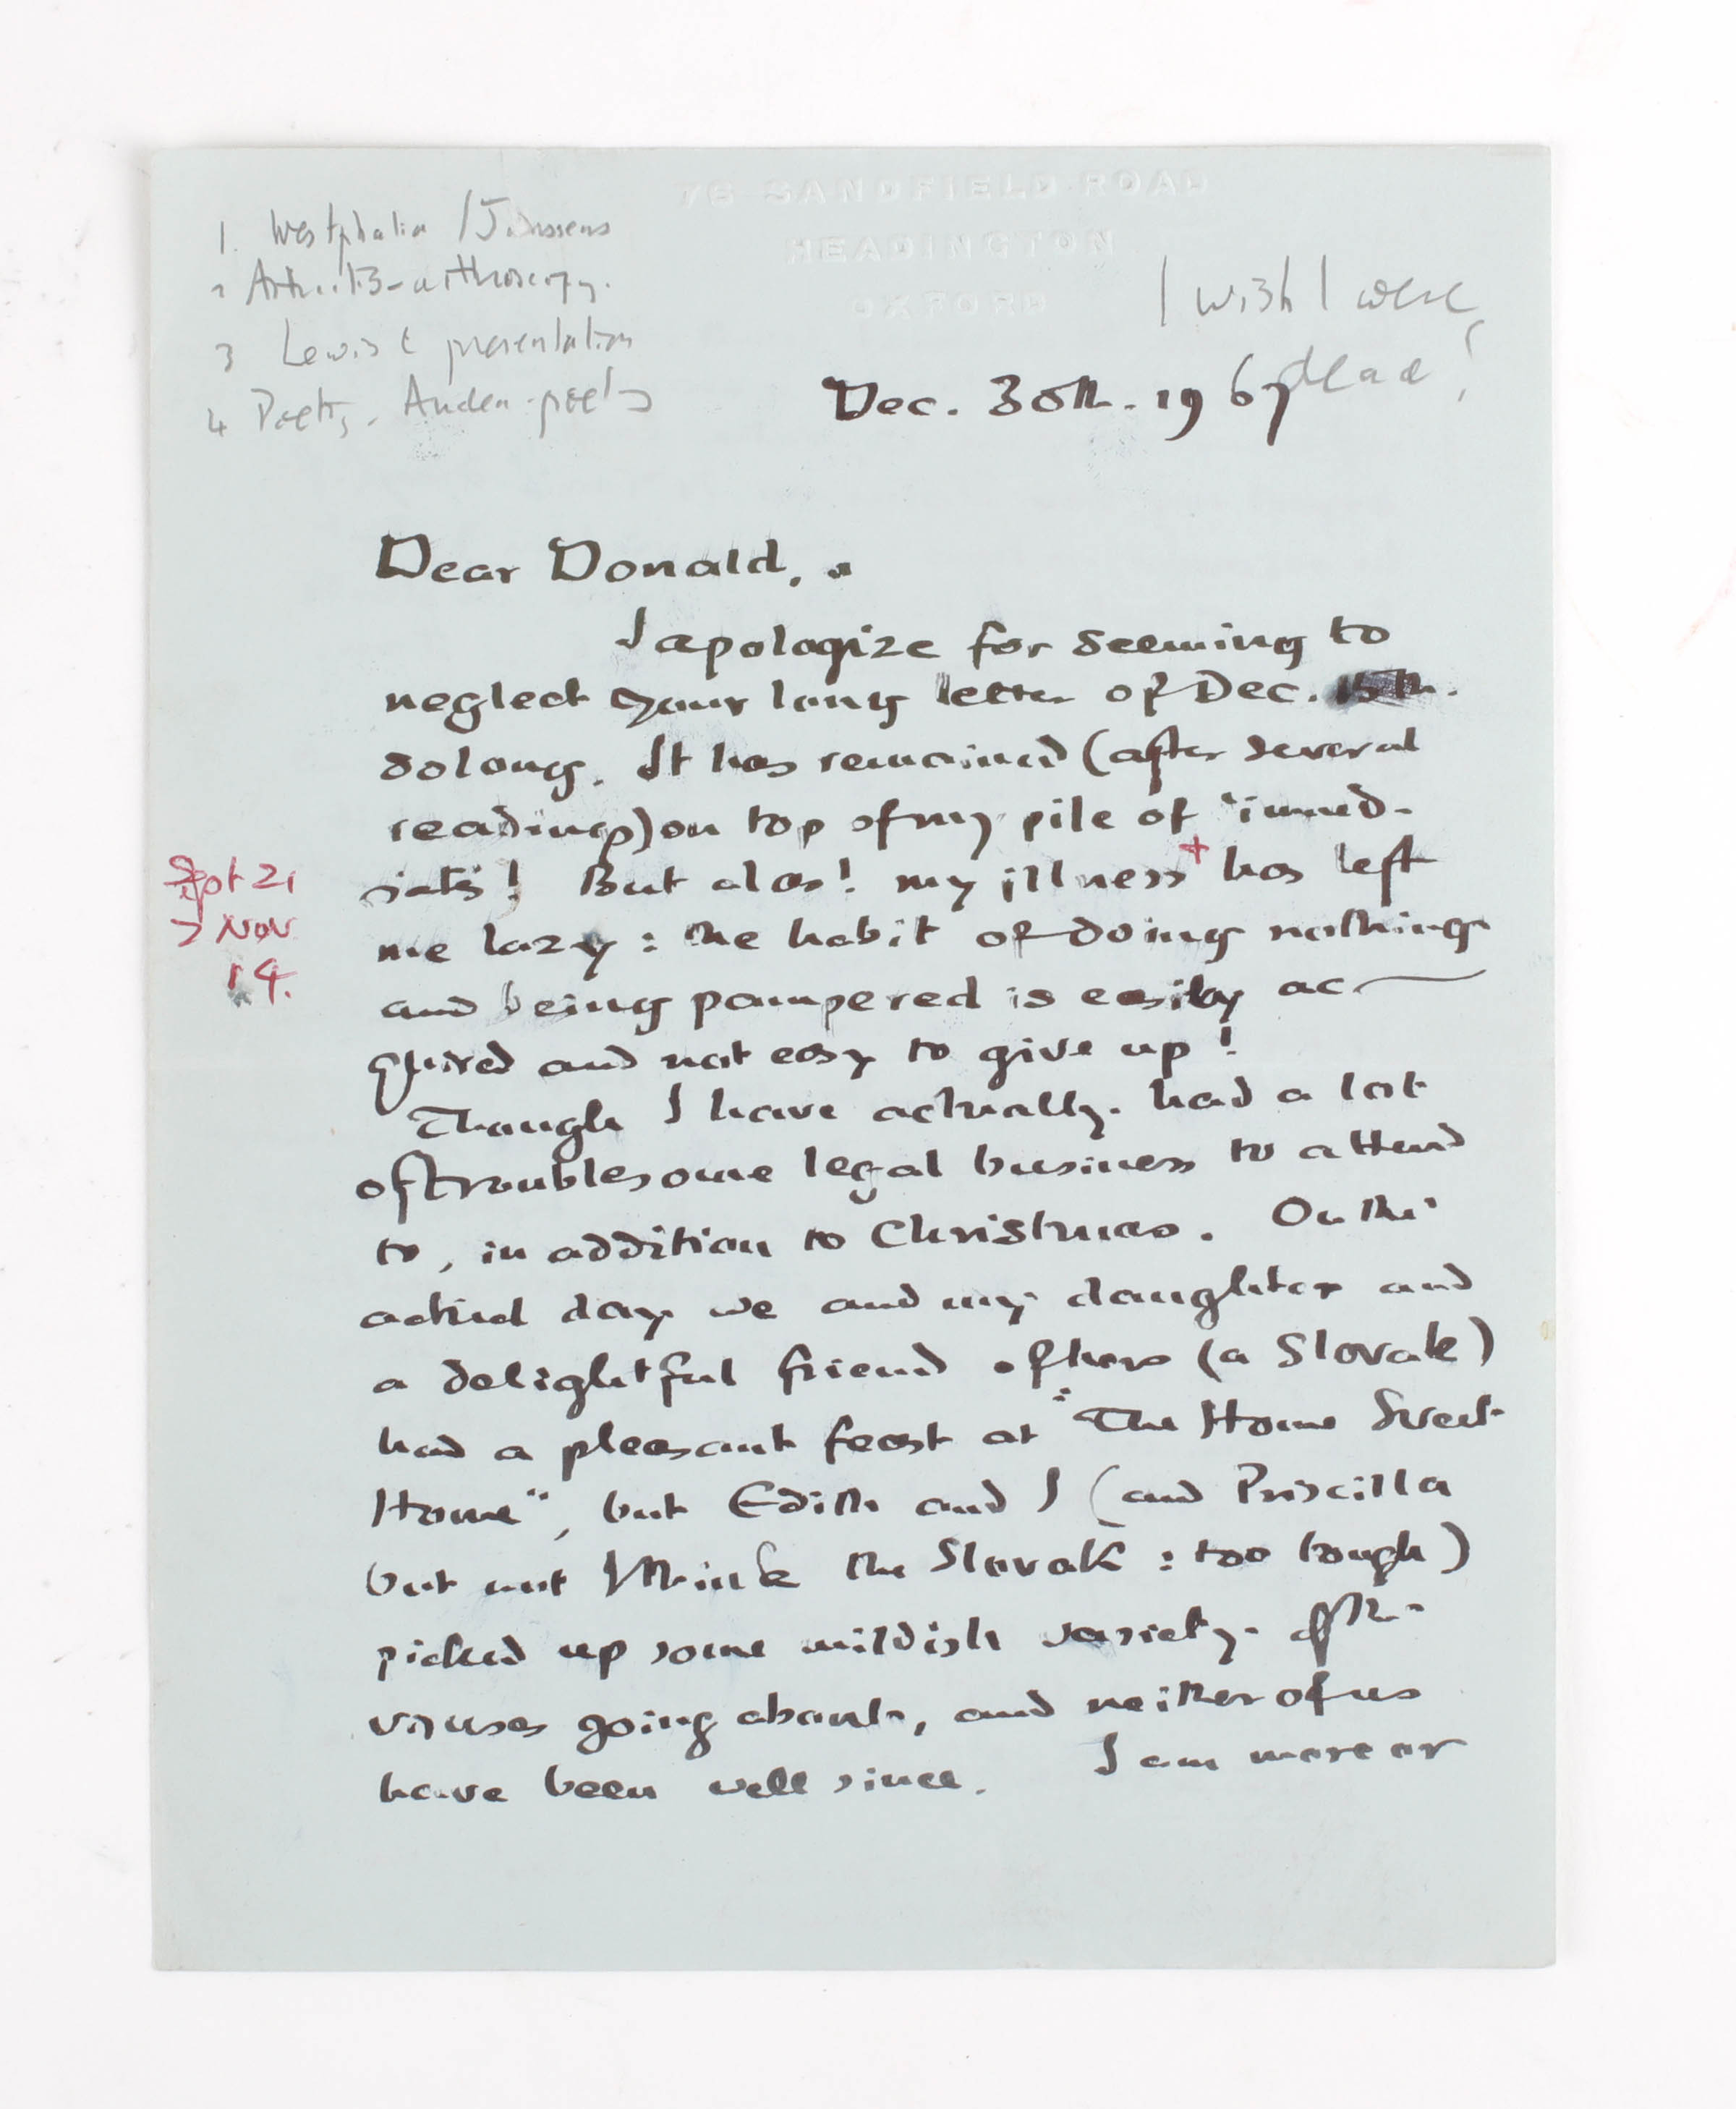 76 SANDFIELD ROAD
HEADINGTON
OXFORD
1. Westphalia / Janssens
2 Arthritis - arthroscopy.
3 Lewis & presentation
4 Poetry. Auden - poets
I wish I were
dead!
Dec. 30th. 1967
Dear Donald,
I apologize for seeming to
neglect your long letter of Dec. 15th.
so long. It has remained (after several
readings) on top of my pile of 'immed-
iats'! But alas! my illness + has left
Sept 21
> Nov
14.
me lazy: the habit of doing nothing
and being pampered is easily ac-
quired and not easy to give up!
Though I have actually had a lot
of troublesome legal business to attend
to, in addition to Christmas. On the
actual day we and my daughter and
a delightful friend of hers (a Slovak)
had a pleasant feast at "The Home Sweet
Home", but Edith and I (and Priscilla
but not I think the Slovak: too tough)
picked up some mildish variety of the
viruses going about, and neither of us
have been well since. I am more or